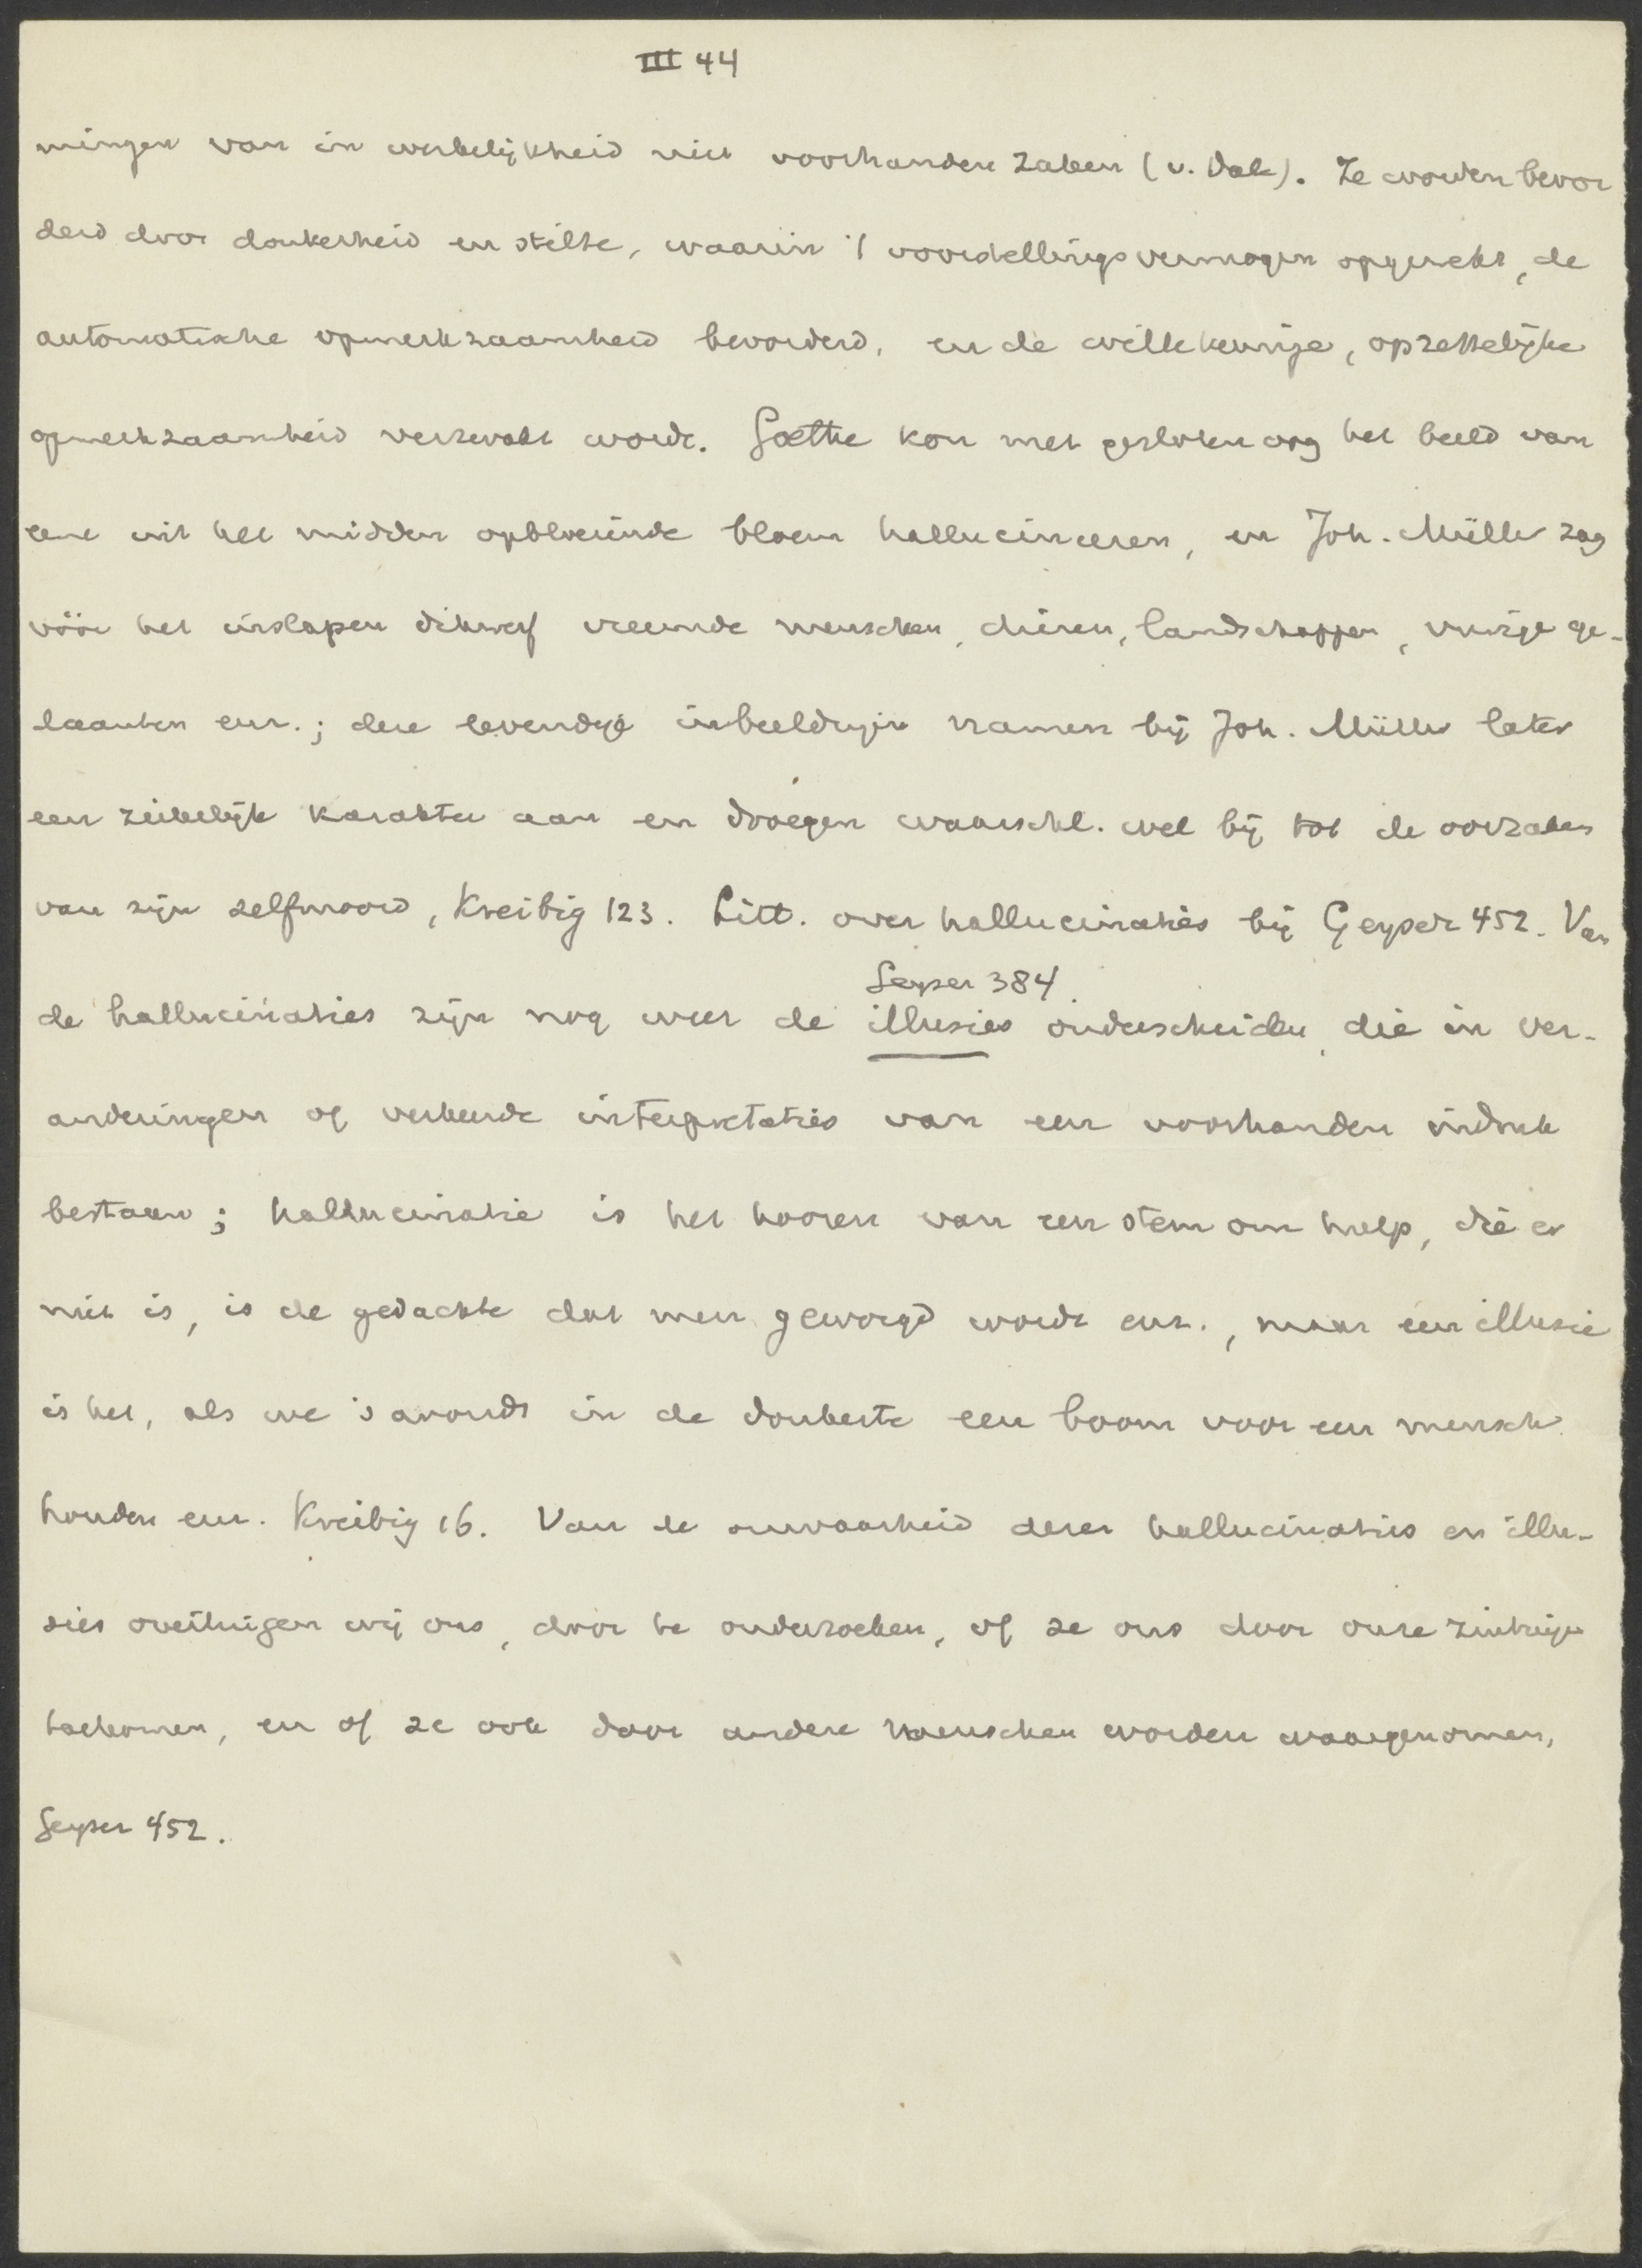 III 44
mingen van in werkelijkheid niet voorhanden zaken (v. Dale). Ze worden bevor
derd door donkerheid en stilte, waarin 't voorstellingsvermogen opgewekt, de
automatische opmerkzaamheid bevorderd, en de willekeurige, opzettelijke
opmerkzaamheid verzwakt wordt. Goethe kon met gesloten oog het beeld van
eene uit het midden opbloeiende bloem hallucineeren, en Joh. Müller zag
vóór het inslapen dikwerf vreemde menschen, dieren, landschappen, vurige ge-
daanten enz.; deze levendige inbeeldingen namen bij Joh. Müller later
een ziekelijk karakter aan en droegen waarschl. wel bij tot de oorzaken
van zijn zelfmoord, Kreibig 123. Litt. over hallucinaties bij Geyser 452. Van
Geyser 384.
de hallucinaties zijn nog weer de illusies onderscheiden, die in ver-
anderingen of verkeerde interpretaties van een voorhanden indruk
bestaan; hallucinatie is het hooren van een stem om hulp, die er
niet is, is de gedachte dat men geworgd wordt enz., maar een illusie
is het, als we 's avonds in de donkerte een boom voor een mensch
houden enz. Kreibig 16. Van de onwaarheid dezer hallucinaties en illu-
sies overtuigen wij ons, door te onderzoeken, of ze ons door onze zintuigen
toekomen, en of ze ook door andere menschen worden waargenomen,
Geyser 452.